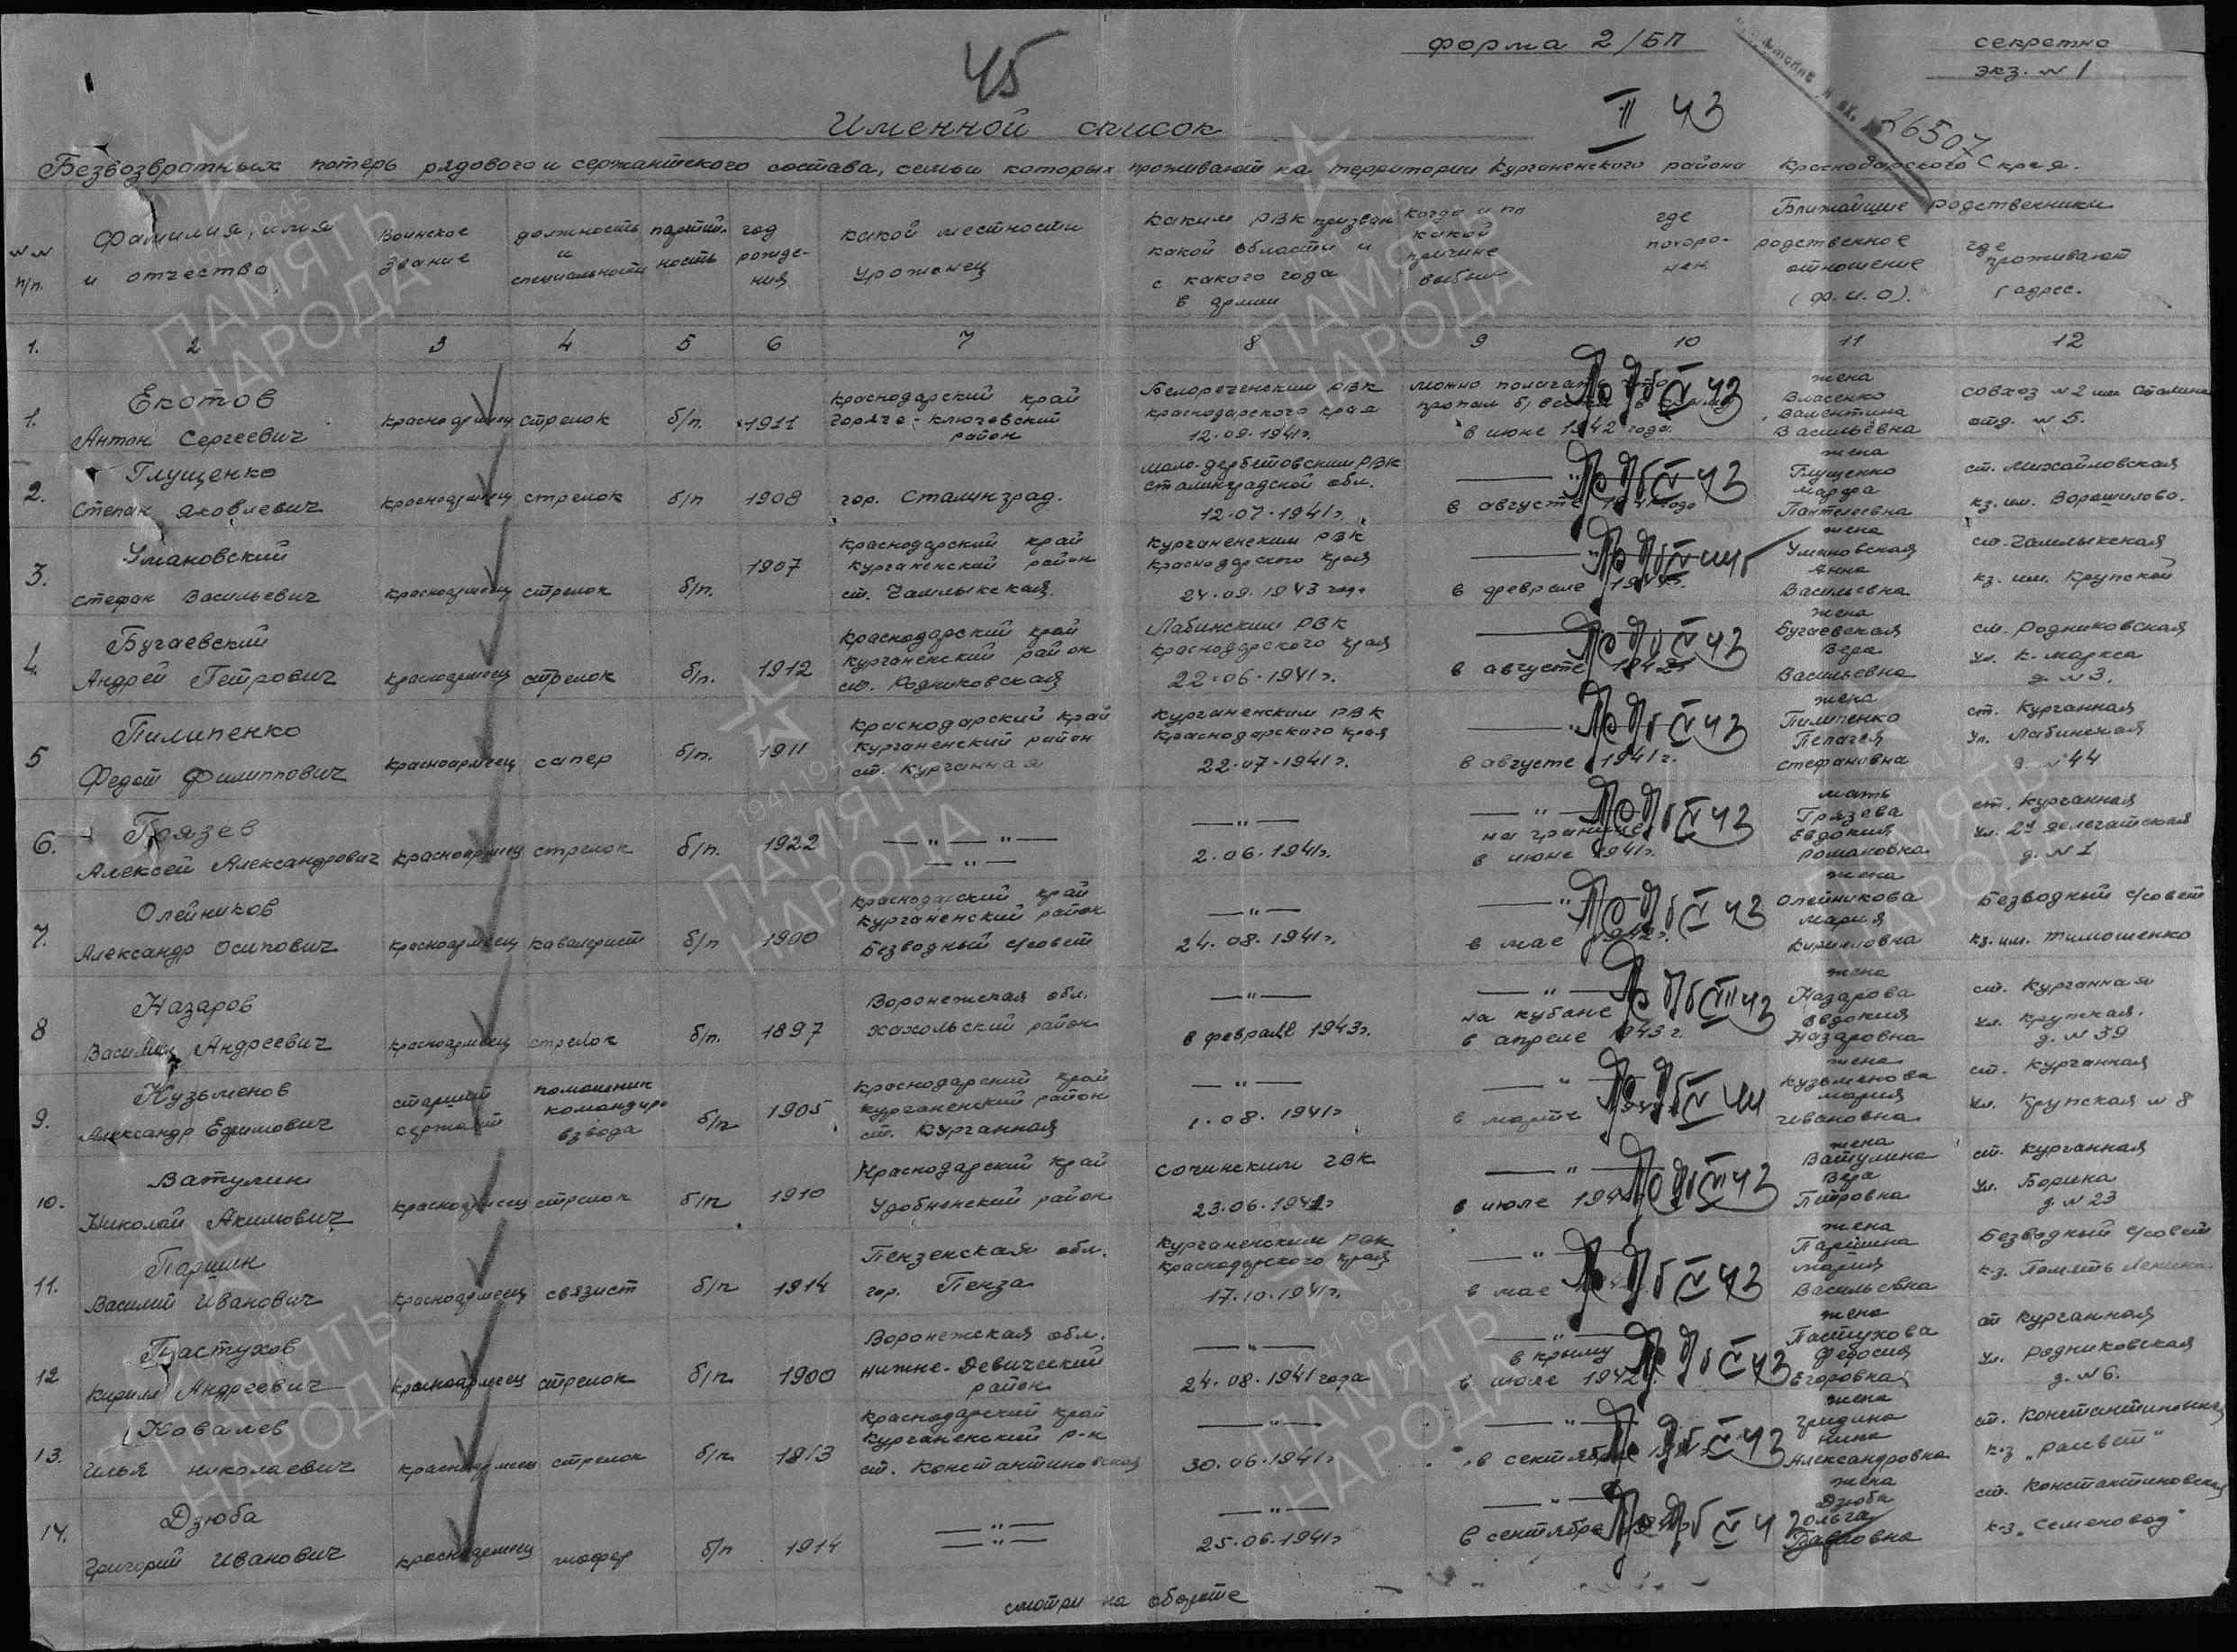 45
форма 2/БП
секретно
экз. № 1
II 43
вх. 26507
Именной список
Безвозвратных потерь рядового и сержантского состава, семьи которых проживают на территории Курганенского района Краснодарского края.
№№ п/п.
Фамилия, имя и отчество
Воинское звание
должность и специальность
партийность
год рождения
какой местности урожанец
каким РВК призван какой области и с какого года в армии
когда и по какой причине выбыл
где похоронен
Ближайшие родственники
родственное отношение (ф.и.о).
где проживают адрес.
1. 2 3 4 5 6 7 8 9 10 11 12
1. Екотов Антон Сергеевич красноармеец стрелок б/п. 1911 Краснодарский край горяче-ключевский район Белореченским РВК Краснодарского края 12.09.1941г. можно полагать пропал б/вести в июне 1942 года. жена Власенко Валентина Васильевна совхоз №2 им Сталина отд. №5.
Пр Пб IV 43
2. Глущенко Степан Яковлевич красноармеец стрелок б/п 1908 гор. Сталинград. мало-дербетовским РВК Сталинградской обл. 12.07.1941г. —"— в августе года жена Глущенко Марфа Пантелеевна ст. Михайловская кз. им. Ворошилова.
Пр Пб IV 43
3. Умановский Стефан Васильевич красноармеец стрелок б/п. 1907 Краснодарский край Курганенский район ст. Чамлыкская. Курганенским РВК Краснодарского края 24.09.1943 года —"— в феврале жена Умановская Анна Васильевна ст. Чамлыкская кз. им. Крупской
4. Бугаевский Андрей Петрович красноармеец стрелок б/п. 1912 Краснодарский край Курганенский район ст. Родниковская Лабинским РВК Краснодарского края 22.06.1941г. —"— в августе жена Бугаевская Вера Васильевна ст. Родниковская ул. К-Маркса д. №3.
Пр Пб IV 43
5 Пилипенко Федот Филиппович красноармеец сапер б/п. 1911 Краснодарский край Курганенский район ст. Курганная Курганенским РВК Краснодарского края 22.07.1941г. —"— в августе 1941г. жена Пилипенко Пелагея Стефановна ст. Курганная ул. Лабинская д. №44
Пр Пб IV 43
6. Грязев Алексей Александрович красноармеец стрелок б/п. 1922 —"— —"— —"— —"— 2.06.1941г. —"— на границе в июне 1941г. мать Грязева Евдокия Романовна ст. Курганная ул. 2я Делегатская д. №1
Пр Пб IV 43
7. Олейников Александр Осипович красноармеец кавалерист б/п 1900 Краснодарский край Курганенский район Безводный с/совет —"— 24.08.1941г. —"— в мае 1942г. жена Олейникова Мария Кирилловна Безводный с/совет кз. им. Тимошенко
Пр Пб IV 43
8 Назаров Василий Андреевич красноармеец стрелок б/п. 1897 Воронежская обл. Хохольский район —"— в феврале 1943г. —"— на Кубане в апреле 1943г. жена Назарова Евдокия Назаровна ст. Курганная ул. Крупская. д. №39
9. Кузьменов Александр Ефимович старший сержант помошник командира взвода б/п 1905 Краснодарский край Курганенский район ст. Курганная —"— 1.08.1941г —"— в марте жена Кузьменова Мария Ивановна ст. Курганная ул. Крупская №8
Пр Пб IV 44
10. Ватулин Николай Акимович красноармеец стрелок б/п 1910 Краснодарский край Удобненский район Сочинским ГВК 23.06.1941г —"— в июле жена Ватулина Вера Петровна ст. Курганная ул. Борина д. №23
11. Паршин Василий Иванович красноармеец связист б/п 1914 Пензенская обл. гор. Пенза Курганенским РВК Краснодарского края 17.10.1941г. —"— в мае жена Паршина Мария Васильевна Безводный с/совет к.з. Память Ленина.
Пр Пб IV 43
12 Пастухов Кирилл Андреевич красноармеец стрелок б/п. 1900 Воронежская обл. Нижне-Девический район —"— 24.08.1941 года —"— в Крыму в июле 1942 жена Пастухова Федосия Егоровна ст Курганная ул. Родниковская д. №6.
Пр Пб IV 43
13. Ковалев Илья Николаевич красноармеец стрелок б/п. 1913 Краснодарский край Курганенский р-н ст. Константиновская —"— 30.06.1941г —"— в сентябре жена Гридина Нина Александровна ст. Константиновская к-з „рассвет"
Пр Пб IV 43
14. Дзюба Григорий Иванович красноармеец шофер б/п 1914 —"— —"— —"— 25.06.1941г —"— в сентябре жена Дзюба Ольга Павловна ст. Константиновская к-з „Семеновод"
Пр Пб IV 43
смотри на обороте
1941-1945
ПАМЯТЬ
НАРОДА